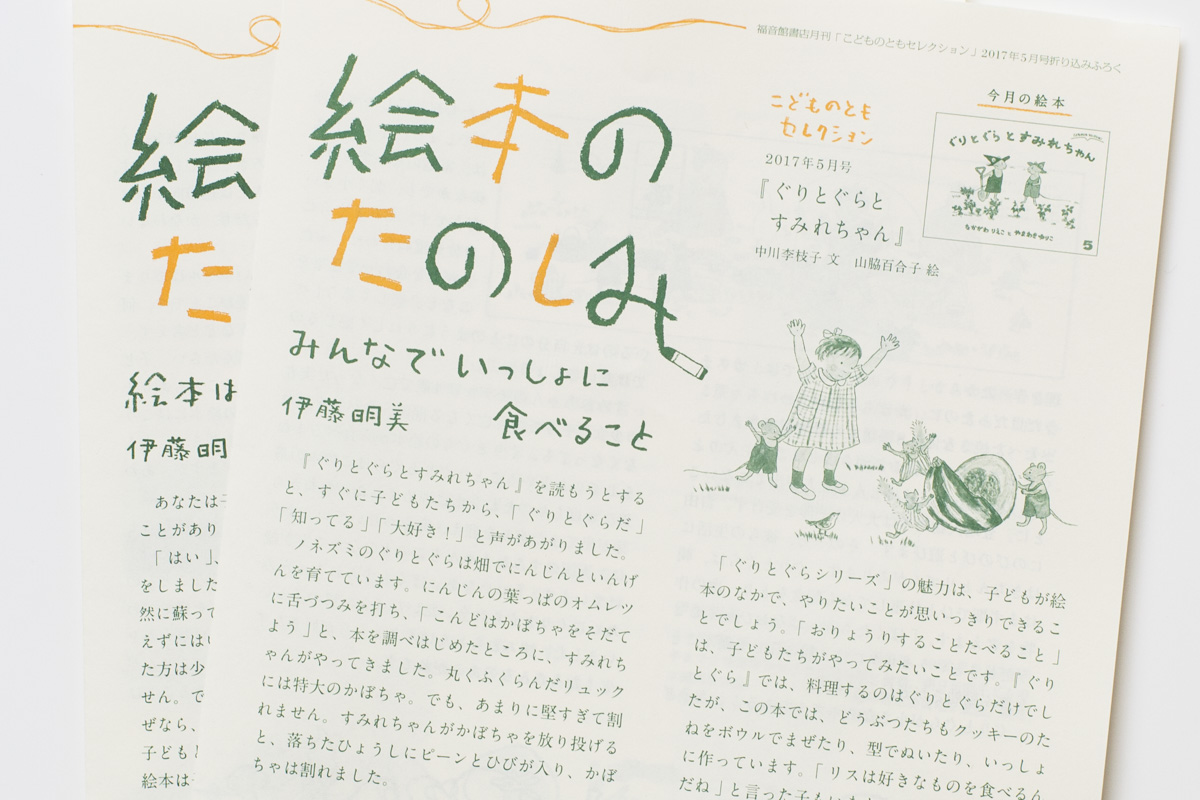 福音館書店月刊「こどものともセレクション」2017年5月号折り込みふろく
絵本の
たのしみ
みんなでいっしょに
食べること
伊藤明美
こどものとも
セレクション
2017年5月号
『ぐりとぐらと
すみれちゃん』
中川李枝子 文　山脇百合子 絵
今月の絵本
ぐりとぐらとすみれちゃん
なかがわ りえこ と やまわき ゆりこ
5
『ぐりとぐらとすみれちゃん』を読もうとする
と、すぐに子どもたちから、「ぐりとぐらだ」
「知ってる」「大好き！」と声があがりました。
ノネズミのぐりとぐらは畑でにんじんといんげ
んを育てています。にんじんの葉っぱのオムレツ
に舌づつみを打ち、「こんどはかぼちゃをそだて
よう」と、本を調べはじめたところに、すみれち
ゃんがやってきました。丸くふくらんだリュック
には特大のかぼちゃ。でも、あまりに堅すぎて割
れません。すみれちゃんがかぼちゃを放り投げる
と、落ちたひょうしにピーンとひびが入り、かぼ
ちゃは割れました。
「ぐりとぐらシリーズ」の魅力は、子どもが絵
本のなかで、やりたいことが思いっきりできるこ
とでしょう。「おりょうりすることたべること」
は、子どもたちがやってみたいことです。『ぐり
とぐら』では、料理するのはぐりとぐらだけでし
たが、この本では、どうぶつたちもクッキーのた
ねをボウルでまぜたり、型でぬいたり、いっしょ
に作っています。「リスは好きなものを食べるん
だね」と言った子もい
絵
た
絵本は
伊藤明
あなたは
ことがあり
「はい」、
をしました
然に蘇って
えずにはい
た方は少
せん。で
ぜなら、
子どもと
絵本は